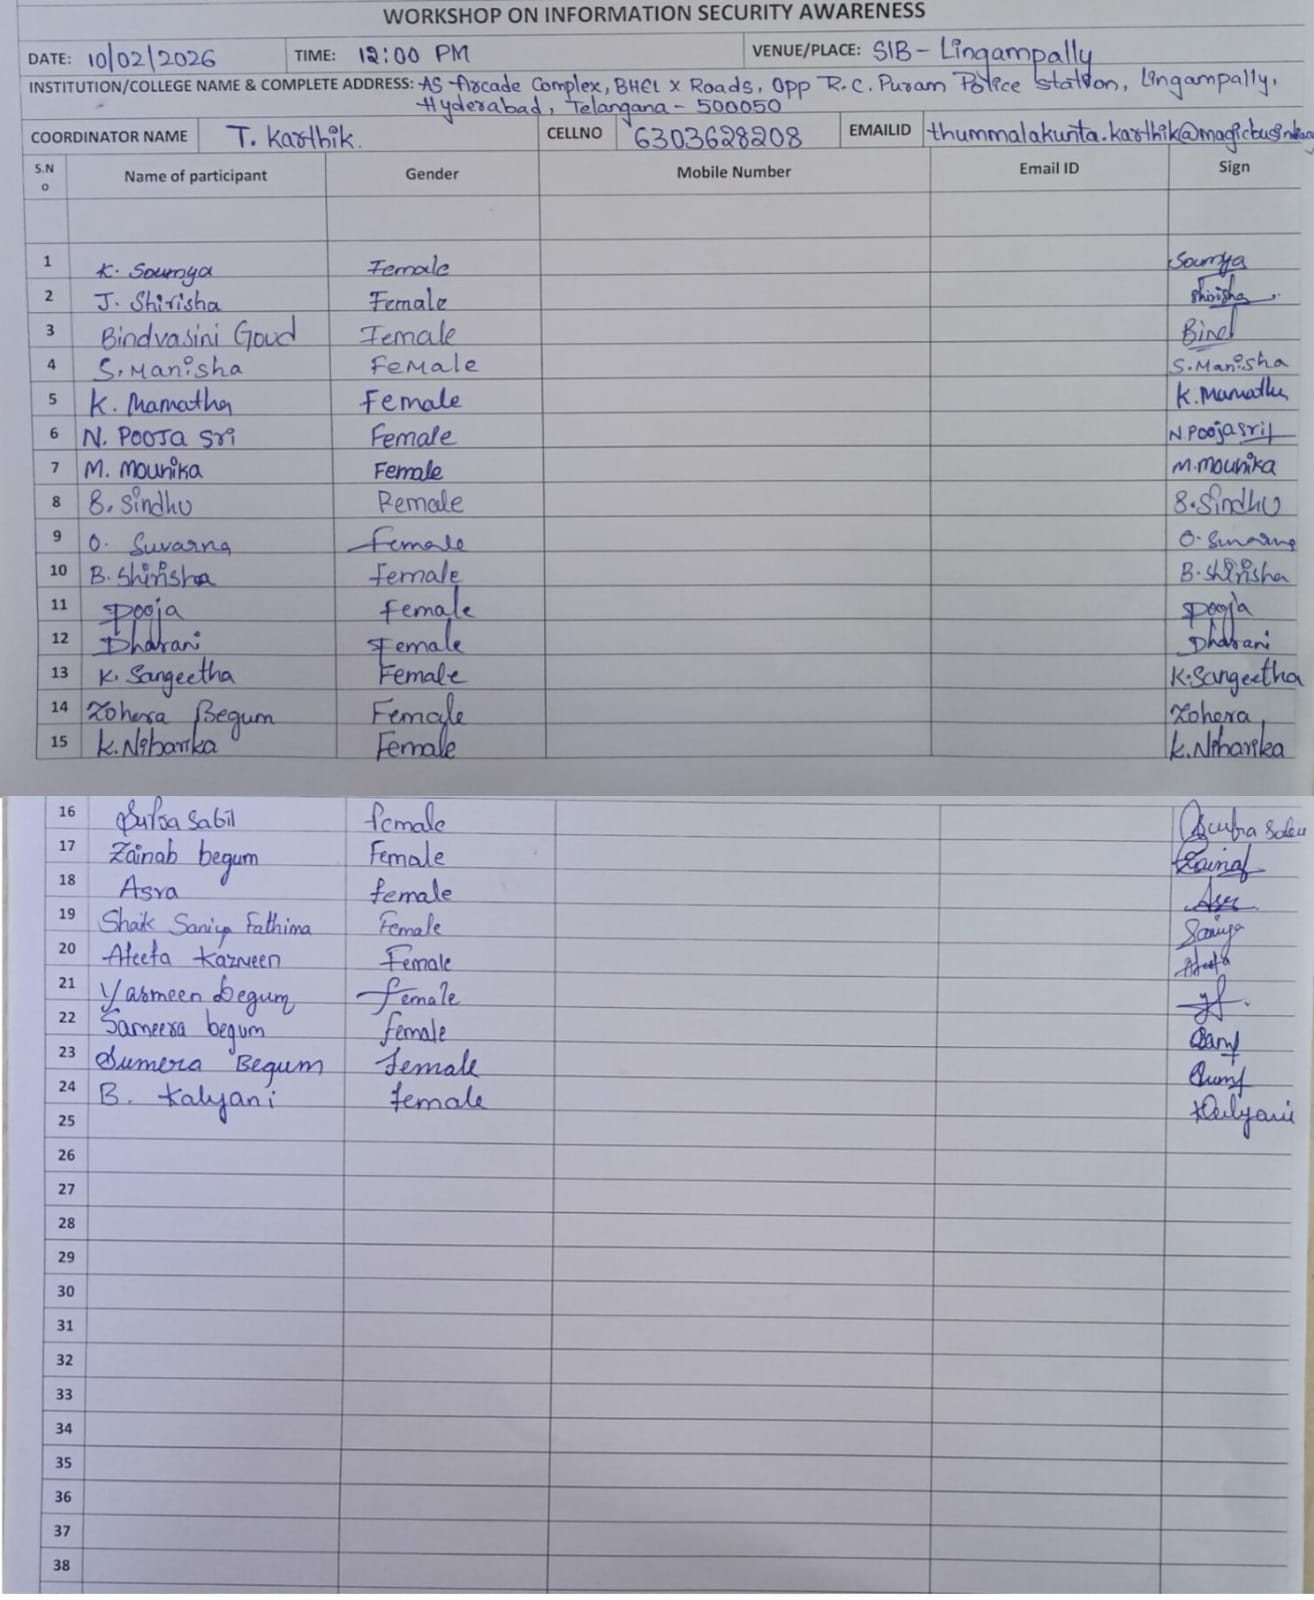 WORKSHOP ON INFORMATION SECURITY AWARENESS
DATE: 10/02/2026 TIME: 12:00 PM VENUE/PLACE: SIB - Lingampally
INSTITUTION/COLLEGE NAME & COMPLETE ADDRESS: AS Arcade Complex, BHEL X Roads, Opp R.C. Puram Police Station, Lingampally,
Hyderabad, Telangana - 500050
COORDINATOR NAME T. Karthik. CELLNO 6303628208 EMAILID
S.No Name of participant Gender Mobile Number Email ID Sign
1 K. Soumya Female Soumya
2 J. Shirisha Female Shirisha
3 Bindvasini Goud Female Bind
4 S. Manisha Female S. Manisha
5 K. Mamatha Female K. Mamatha
6 N. Pooja Sri Female N Poojasri
7 M. Mounika Female M. Mounika
8 B. Sindhu Remale B. Sindhu
9 O. Suvarna Female O. Suvarna
10 B. Shirisha Female B. Shirisha
11 Pooja Female Pooja
12 Dharani Female Dharani
13 K. Sangeetha Female K. Sangeetha
14 Zohera Begum Female Zohera
15 K. Niharika Female K. Niharika
16 female
17 Zainab begum Female Zainab
18 Asra female
19 Shaik Saniya Fathima Female Saniya
20 Female
21 Yasmeen Begum female
22 Sameera begum female
23 Sumera Begum female
24 B. Kalyani female Kalyani
25
26
27
28
29
30
31
32
33
34
35
36
37
38